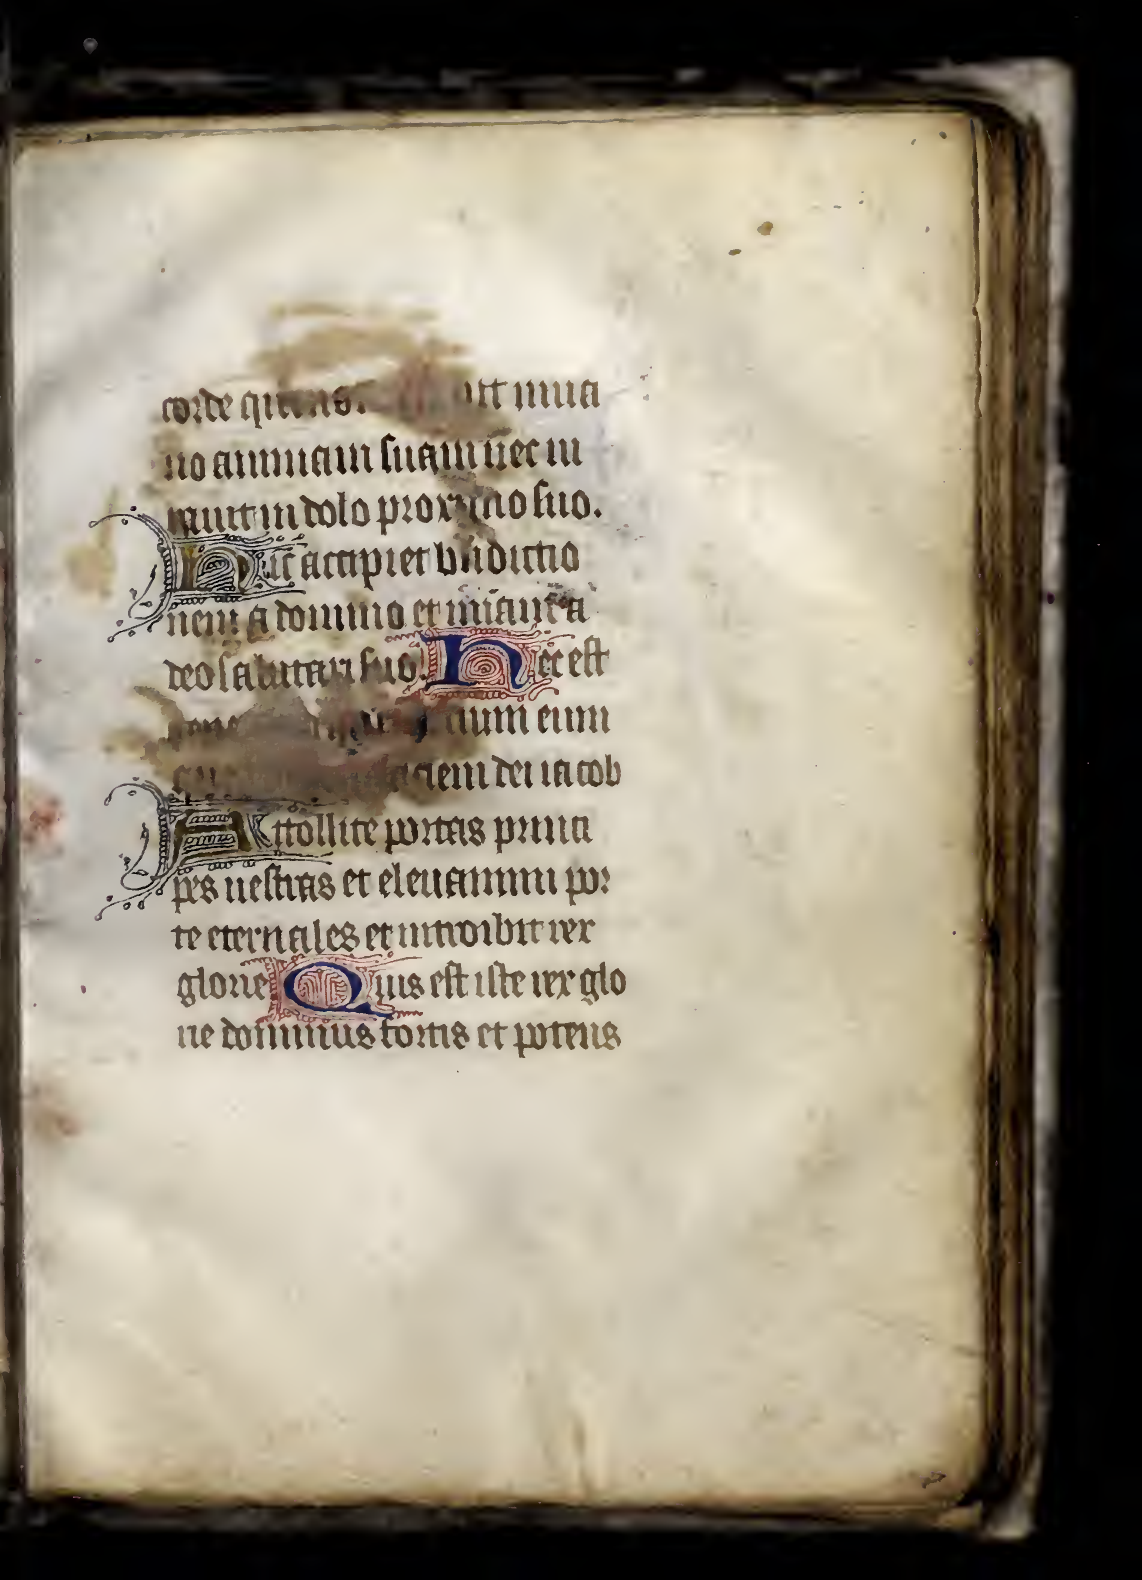 corde qui in ua
no animam suam nec iu
rauit in dolo proximo suo.
Hic accipiet bn̄dictio
nem a domino et mīam a
deo salutari suo. Hec est
eum
faciem dei iacob
Attollite portas princi
pes uestras et eleuamini por
te eternales et introibit rex
glorie Quis est iste rex glo
rie dominus fortis et potens